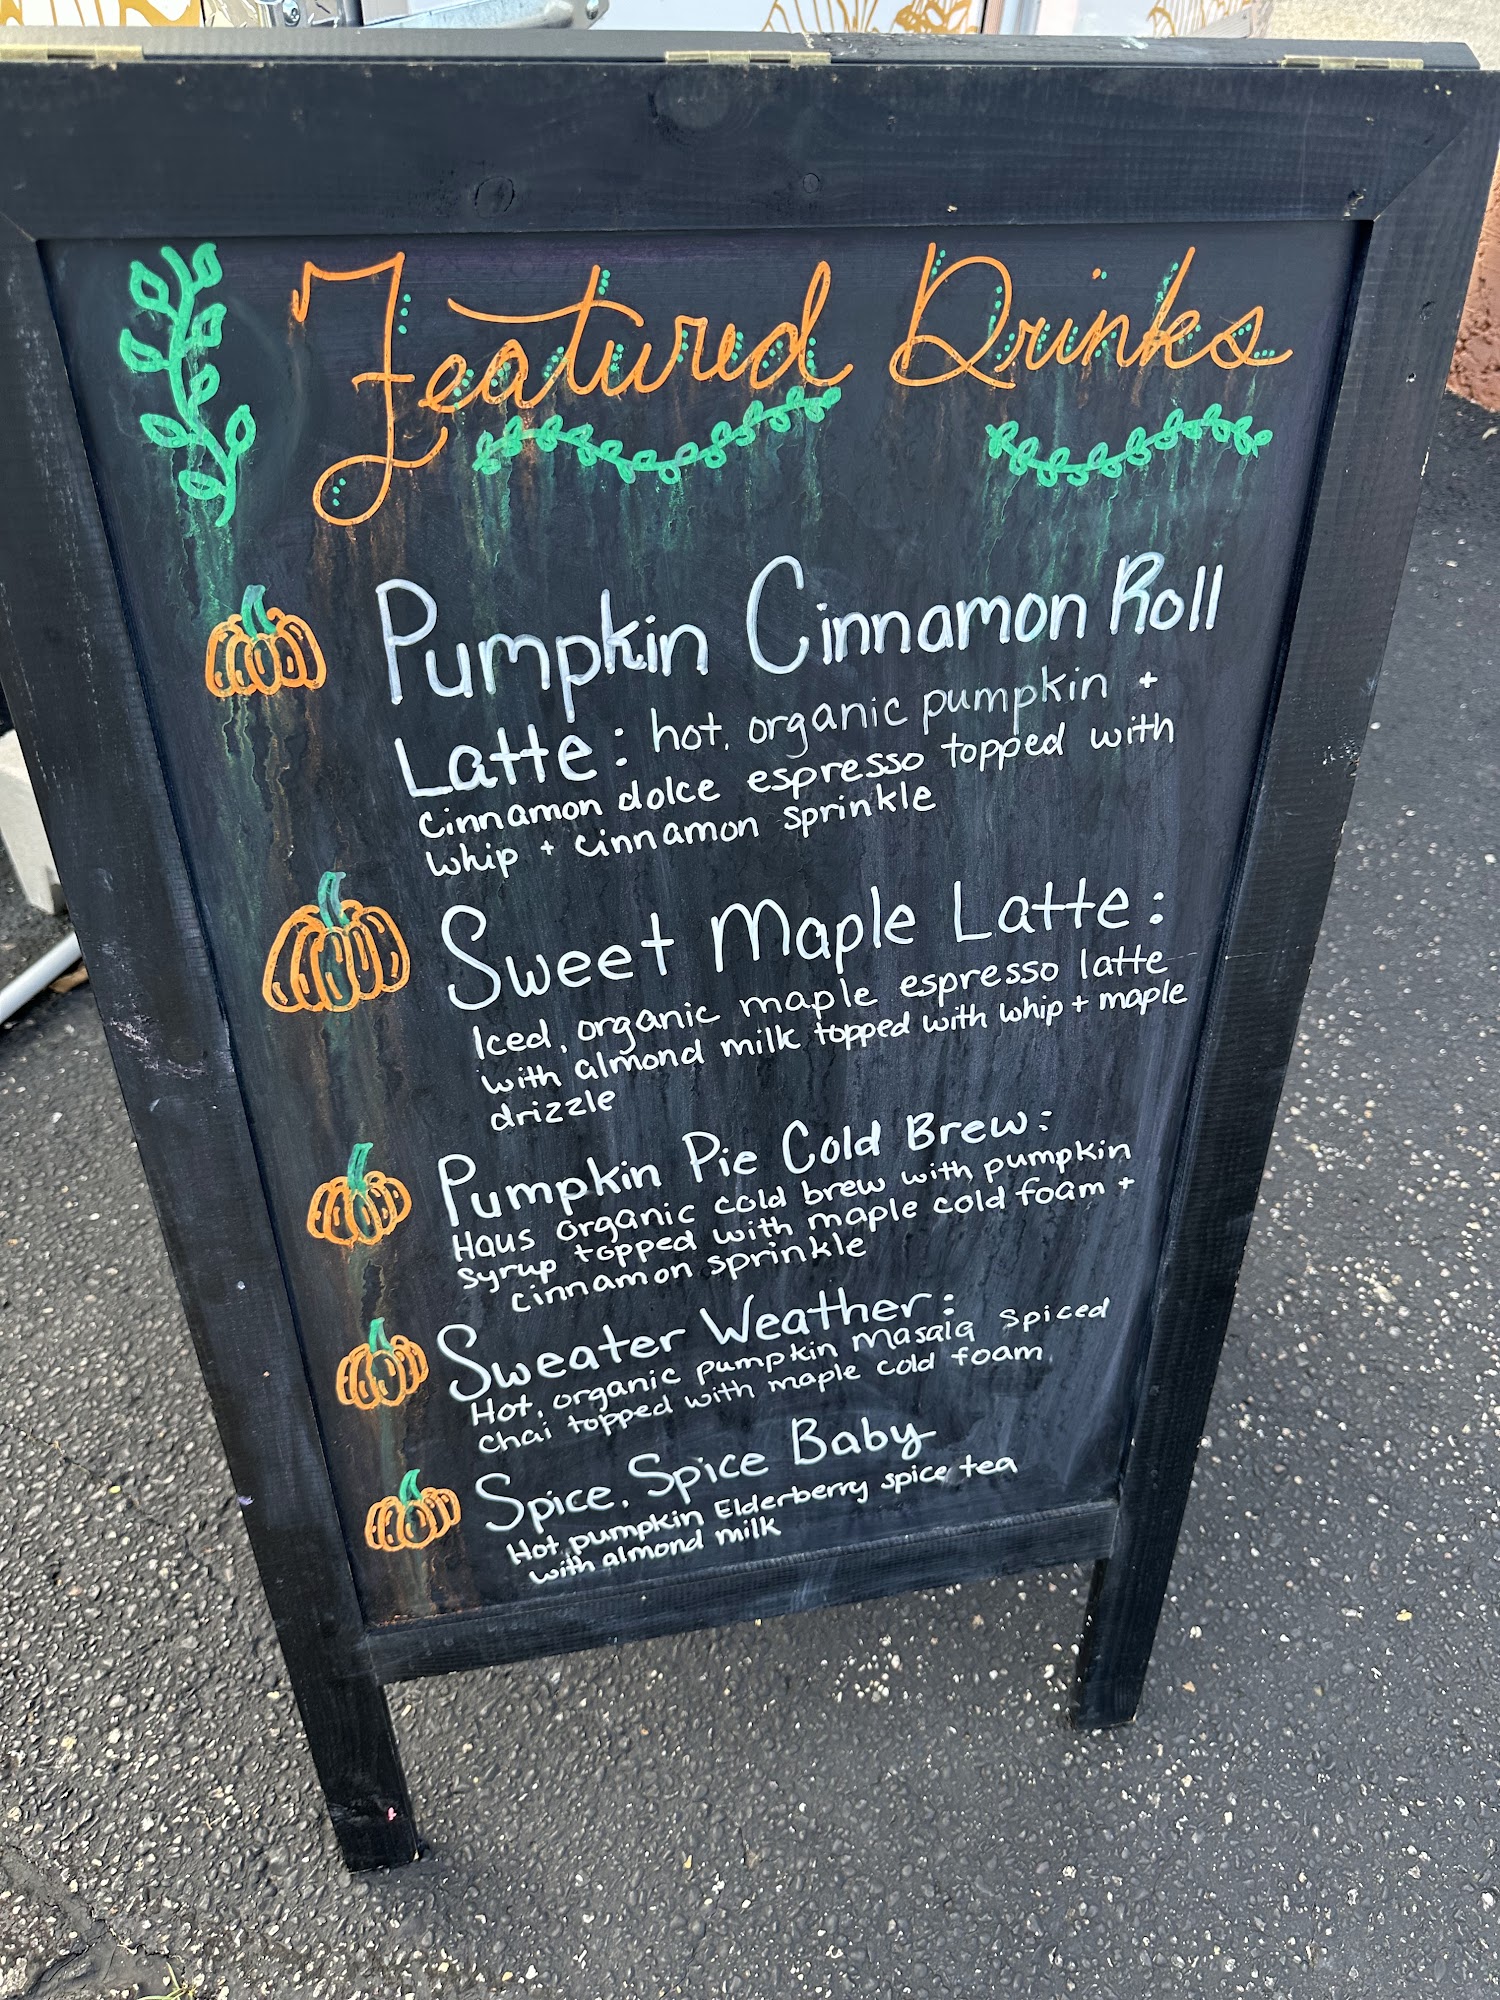 Featured Drinks
Pumpkin Cinnamon Roll
Latte: hot, organic pumpkin +
cinnamon dolce espresso topped with
whip + cinnamon sprinkle
Sweet Maple Latte:
Iced, organic maple espresso latte
with almond milk topped with whip + maple
drizzle
Pumpkin Pie Cold Brew:
Haus organic cold brew with pumpkin
syrup topped with maple cold foam +
cinnamon sprinkle
Sweater Weather:
Hot, organic pumpkin Masala spiced
chai topped with maple cold foam
Spice, Spice Baby
Hot, pumpkin Elderberry spice tea
with almond milk